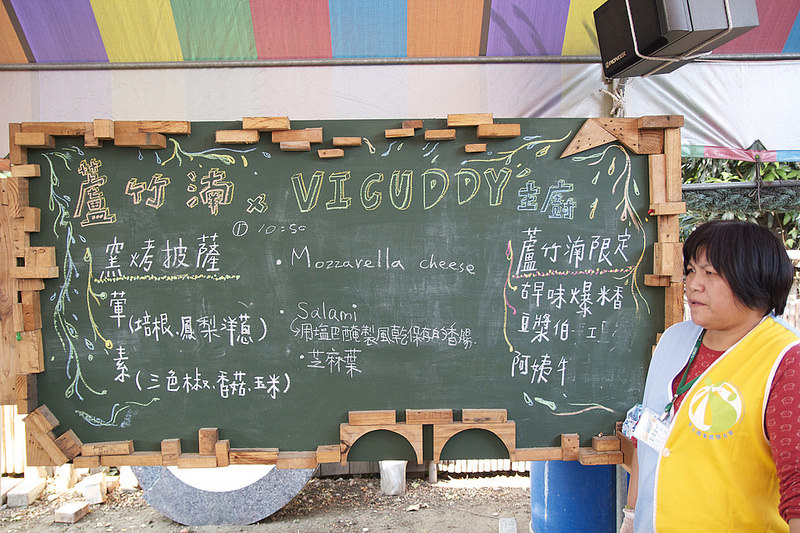 蘆竹湳 × VICUDDY 主廚
① 10:50
窯烤披薩
葷(培根、鳳梨洋蔥)
素(三色椒、香菇、玉米)
• Mozzarella cheese
• Salami
↳用塩巴醃製風乾保存的香腸
• 芝麻葉
蘆竹湳限定
古早味爆米香
豆漿伯
阿姨牛
PIONEER